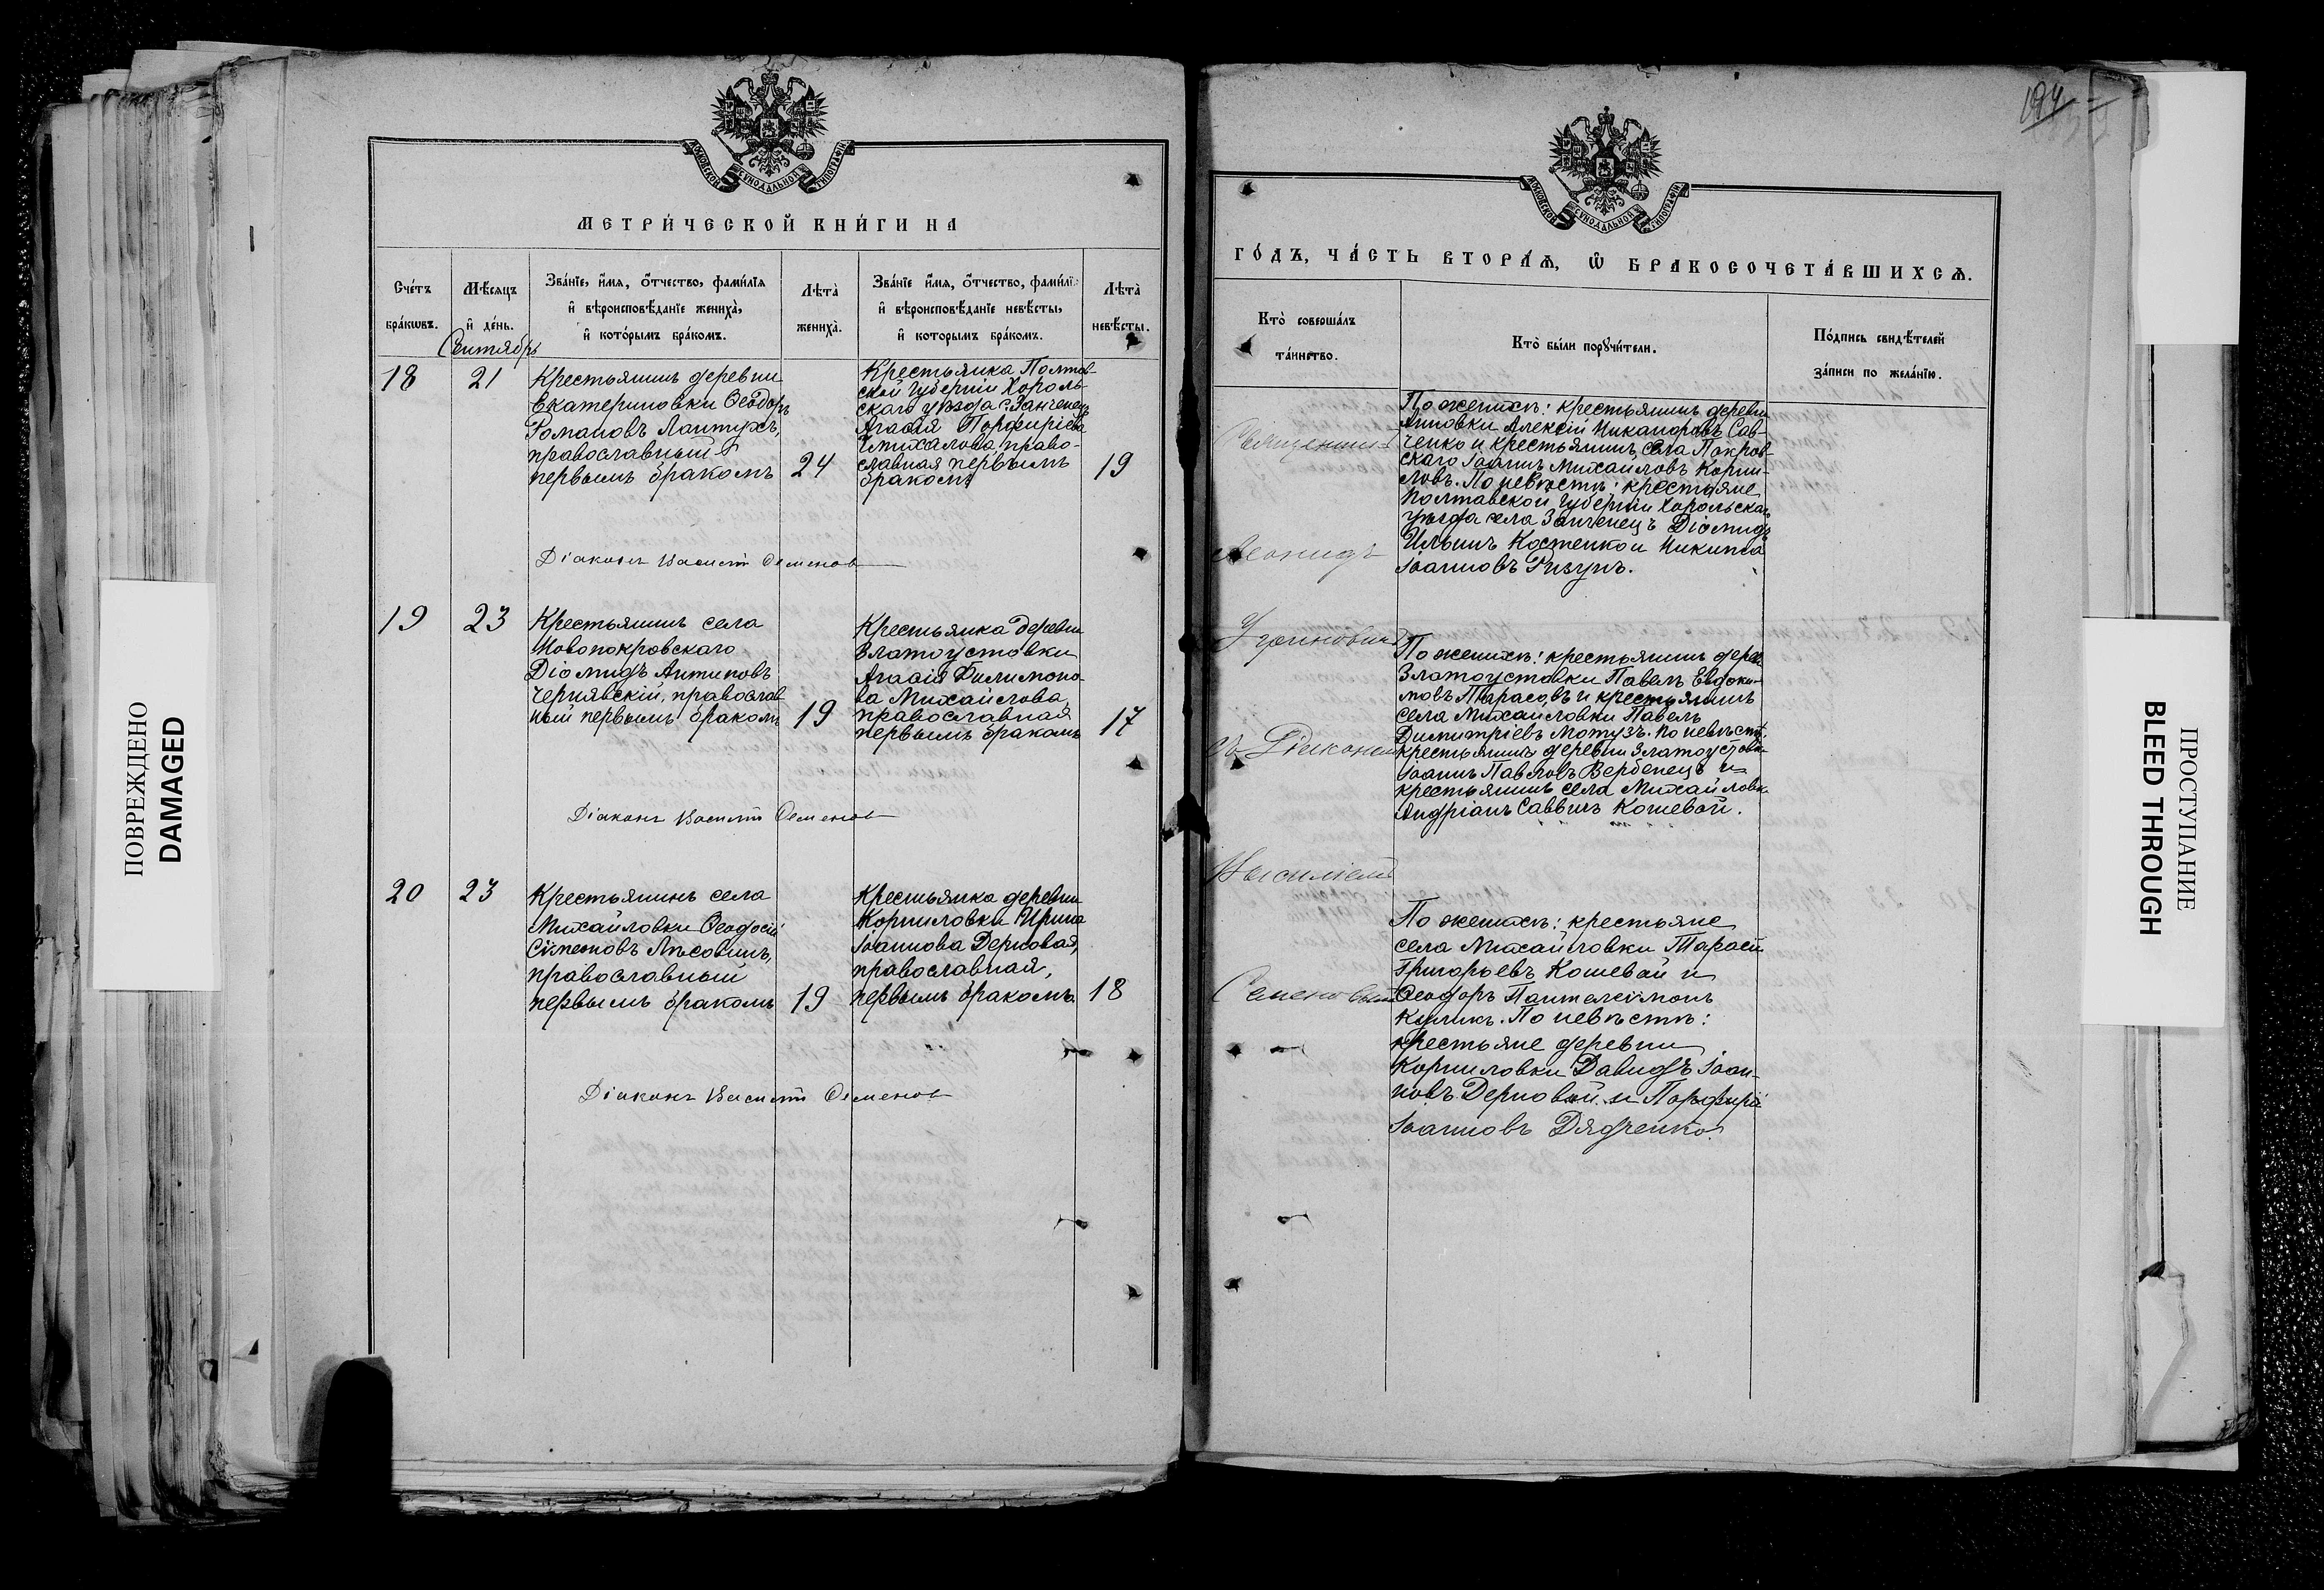 194
МОСКОВСКОЙ СѴНОДАЛЬНОЙ ТИПОГРАФІИ
МЕТРИ́ЧЕСКОЙ КНИ́ГИ НА
Сче́тъ бра́кωвъ.
Мѣ́сяцъ и҆ де́нь.
Зва́нїе, и҆́мя, ѻ҆́тчество, фами́лїя
и҆ вѣроисповѣ́данїе жениха̀,
и҆ кото́рымъ бра́комъ.
Лѣта̀ жениха̀.
Зва́нїе и҆́мя, ѻ҆́тчество, фами́лї
и҆ вѣроисповѣ́данїе невѣ́сты,
и҆ которымъ бра́комъ.
Лѣта̀ невѣ́сты.
Сентябрь
18
21
Крестьянинъ деревни
Екатериновки Ѳеодоръ
Романовъ Лантухъ,
православный
первымъ бракомъ
24
Крестьянка Полтав-
ской губерніи Хороль-
скаго уѣзда с.
Агаѳія Порфиріева
православная первымъ
бракомъ
19
Діаконъ Василій Семенов
19
23
Крестьянинъ села
Новопокровскаго
Діомидъ Антиповъ
Чернявскій, православ
ный первымъ бракомъ
19
Крестьянка деревни
Златоустовки
Агаѳія Филимоно-
ва Михайлова,
православная
первымъ бракомъ
17
Діаконъ Василій Семенов
20
23
Крестьянинъ села
Михайловки Ѳеодосій
Сѵмеоновъ Лѣсовинъ,
православный
первымъ бракомъ
19
Крестьянка деревни
Корниловки Ирина
Іоаннова Дерновая,
православная,
первымъ бракомъ.
18
Діаконъ Василій Семенов
МОСКОВСКОЙ СѴНОДАЛЬНОЙ ТИПОГРАФІИ
ГО́ДЪ, ЧА́СТЬ ВТОРА́Ѧ, Ѡ҆ БРАКОСОЧЕТА́ВШИХСѦ.
Кто̀ соверша́лъ
та́инство.
Кто̀ бы́ли порꙋчи́тели.
По́дпись свидѣ́телей
за́писи по жела́нїю.
Священникъ
Леонидъ
съ Діакономъ
Василіемъ
Семеновымъ
По женихѣ: крестьянинъ деревни
Анновки Алексій Никаноровъ Сав-
ченко и крестьянинъ села Покров-
скаго Іоаннъ Михайловъ Корни-
ловъ. По невѣстѣ: крестьяне
Полтавской губерніи Хорольскаго
уѣзда села Діомидъ
Ильинъ Костенко и Никита
Іоанновъ Ризунъ.
По женихѣ: крестьянинъ дерев.
Златоустовки Павелъ Евдоки-
мовъ Тарасовъ и крестьянинъ
села Михайловки Павелъ
Димитріевъ Мотузъ. По невѣстѣ:
крестьянинъ деревни Златоустовки
Іоаннъ Павловъ Вербенецъ и
крестьянинъ села Михайловки
Андріанъ Саввинъ Кошевой.
По женихѣ: крестьяне
села Михайловки Тарасій
Григорьевъ Кошевой и
Ѳеодоръ Пантелеимонъ
Куликъ. По невѣстѣ:
крестьяне деревни
Корниловки Давидъ Іоан-
новъ Дерновой и Порфирій
Іоанновъ Дядченко.
ПОВРЕЖДЕНО
DAMAGED
ПРОСТУПАНИЕ
BLED THROUGH